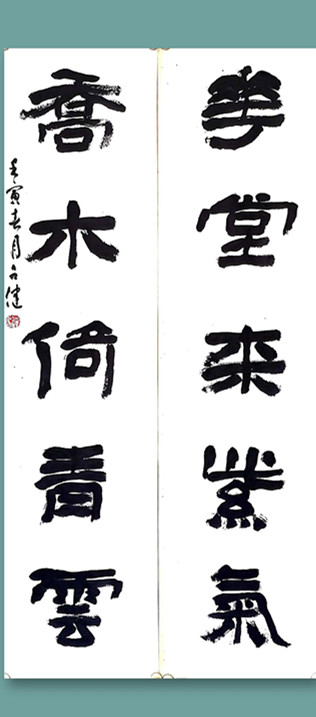 華堂来紫氣
喬木倚青雲
壬寅春月健